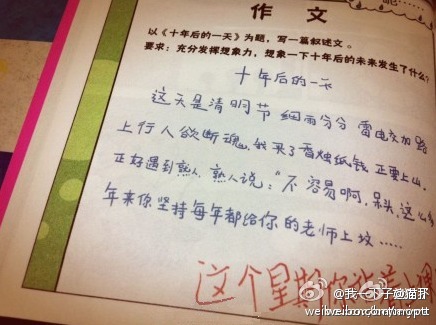 作 文
以《十年后的一天》为题，写一篇叙述文。
要求：充分发挥想象力，想象一下十年后的未来发生了什么？
十年后的一天
这天是清明节 细雨分分 雷电交加 路
上行人欲断魂，我买了香烛纸钱 正要上山，
正好遇到熟人，熟人说：“不容易啊，呆头，这么多
年来你坚持每年都给你的老师上坟……
这个星期你没美